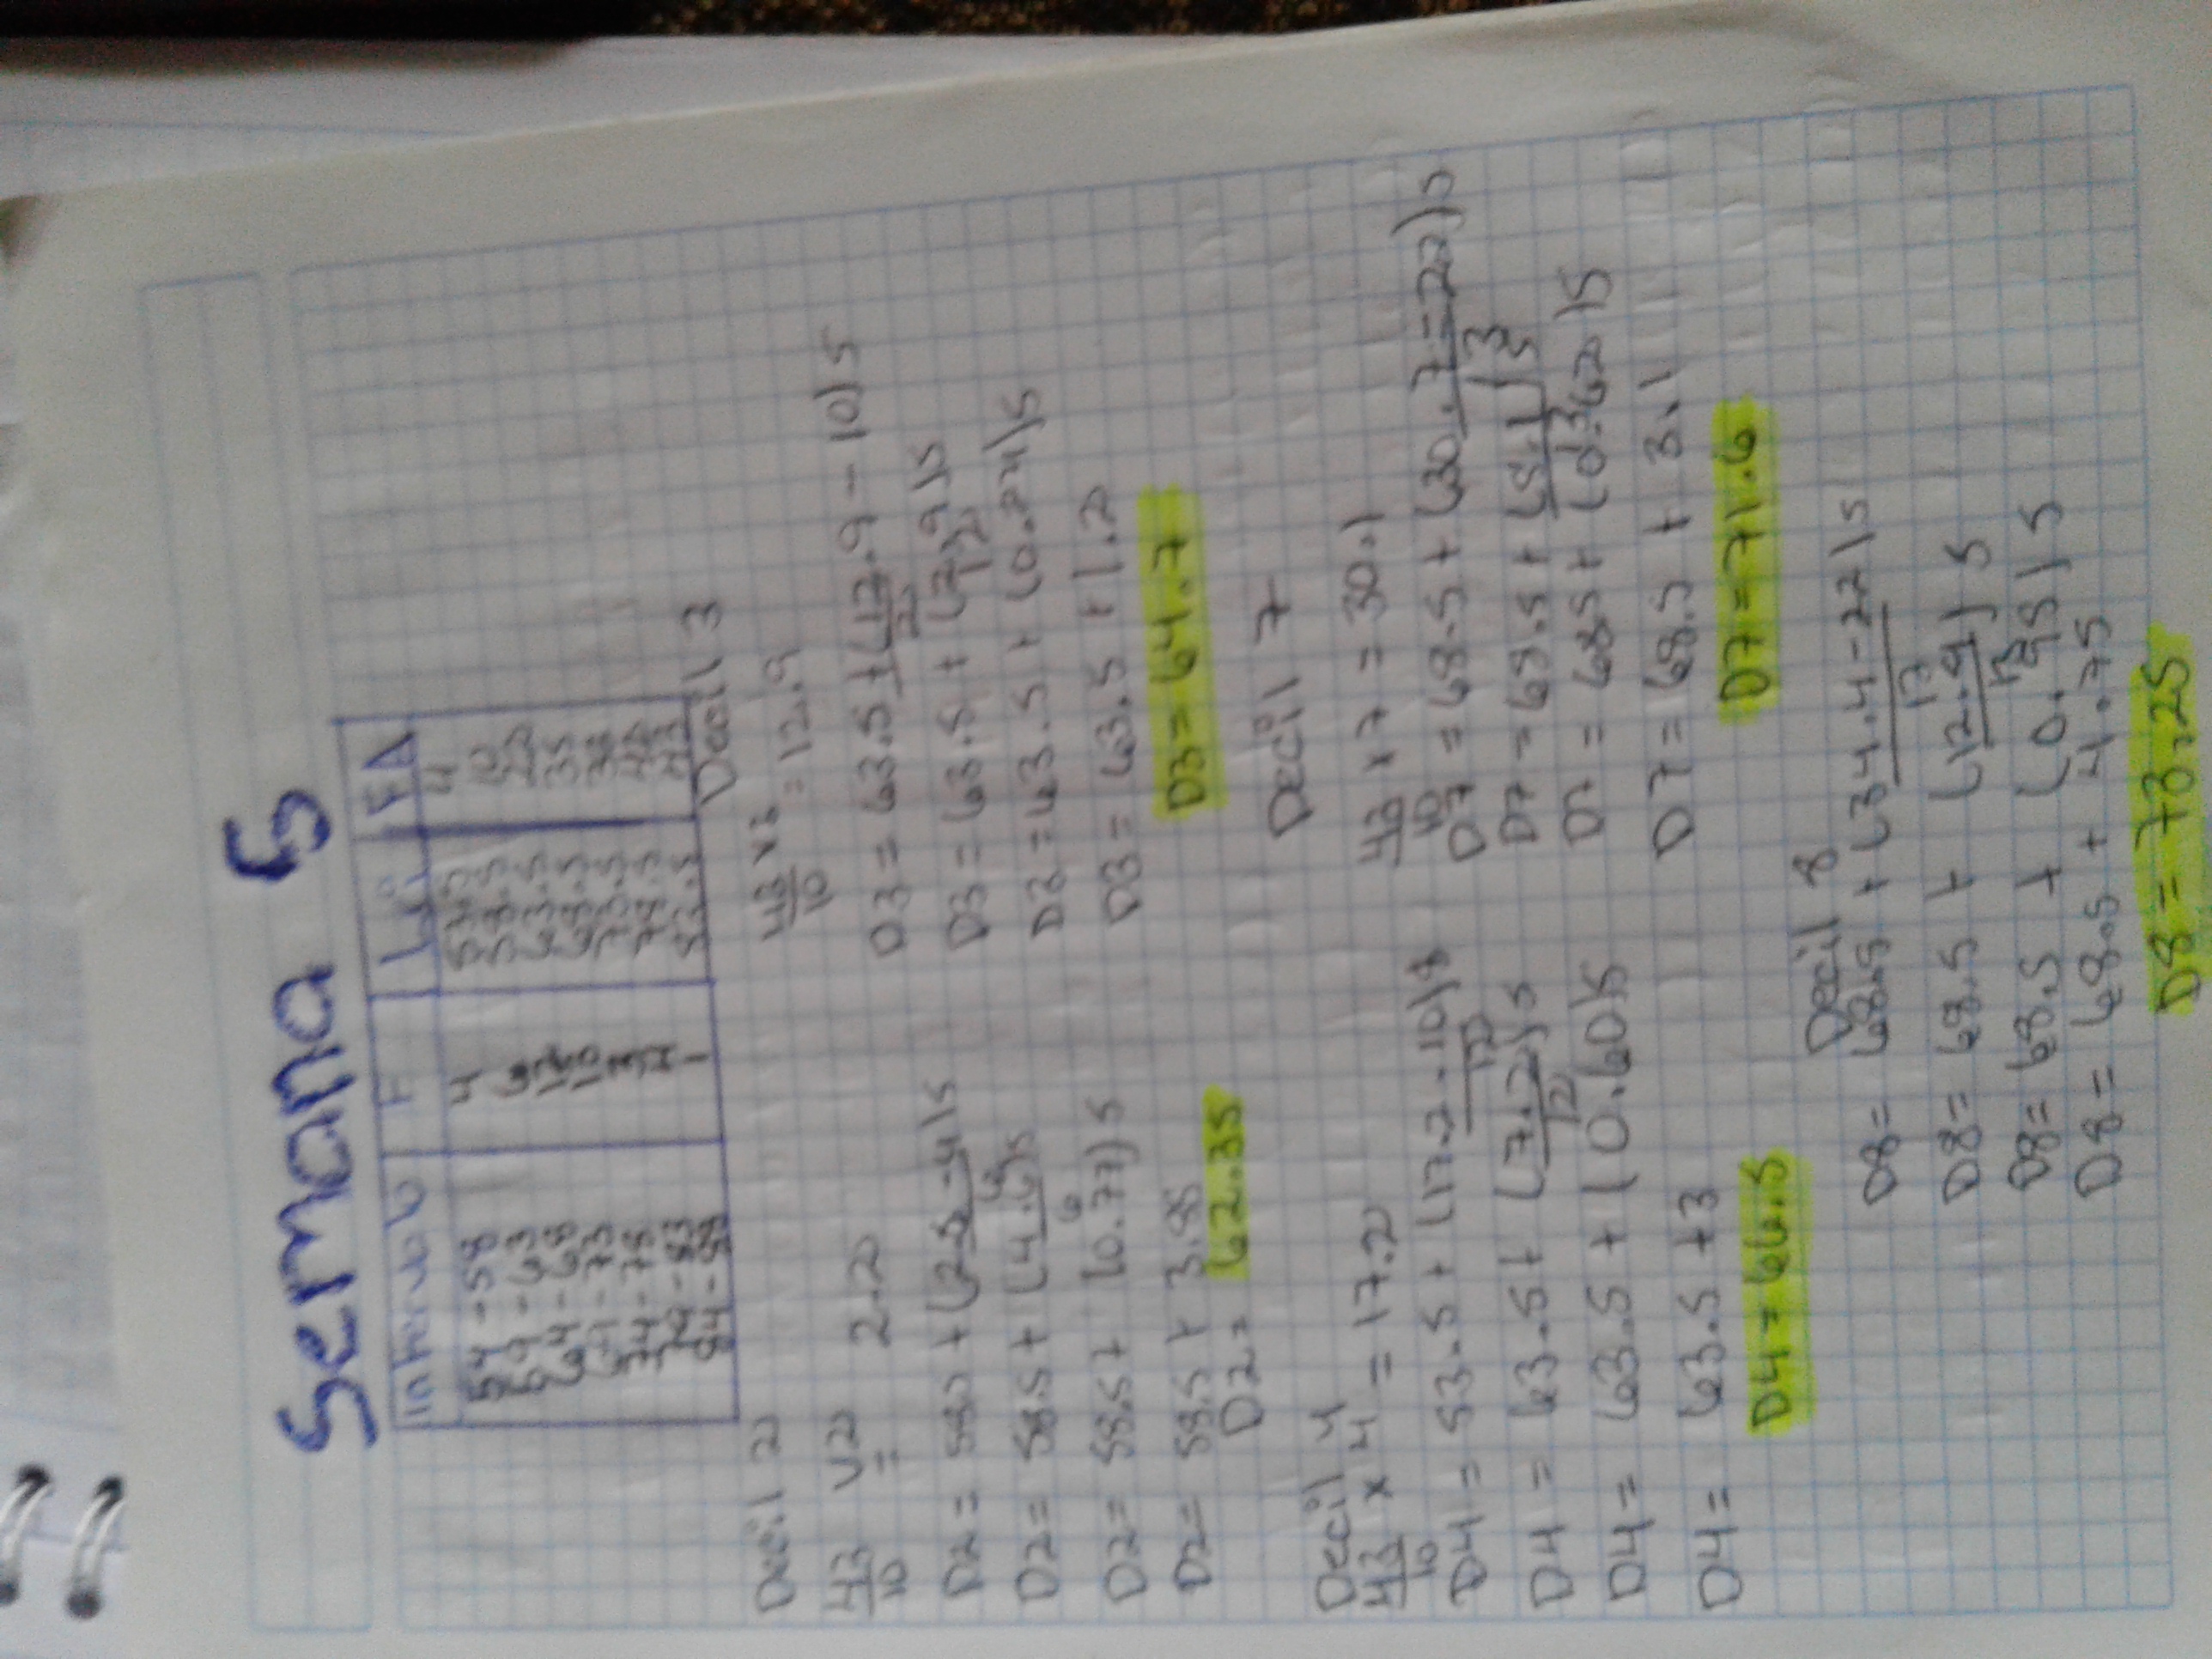 Semana 5
Intervalo F Lri FA
54-58 4 54.5 4
59-63 6 58.5 10
64-68 12 63.5 22
69-73 13 68.5 35
74-78 3 73.5 38
79-83 4 78.5 42
84-88 1 83.5 43
Decil 2
43/10 x2 = 2.20
D2= 58.5 + (8.6-4)5
6
D2= 58.5+ (4.6)5
6
D2= 58.5+ (0.77)5
D2= 58.5+ 3.85
D2= 62.35
Decil 3
43/10 x3 = 12.9
D3= 63.5+(12.9-10)5
12
D3= 63.5+ (2.9)5
12
D3= 63.5+ (0.24)5
D3= 63.5 +1.2
D3= 64.7
Decil 4
43/10 x 4 = 17.2
D4= 53.5+ (17.2-10)5
12
D4 = 63.5+ (7.2)5
12
D4= 63.5+ (0.60)5
D4= 63.5 +3
D4= 66.5
Decil 7
43/10 x7 = 30.1
D7 = 68.5+ (30.7-22)5
13
D7= 68.5+ (8.1)5
13
D7= 68.5+ (0.62)5
D7= 68.5 + 3.1
D7=71.6
Decil 8
D8= 68.5 + (34.4-22)5
13
D8= 68.5 + (12.4)5
13
D8= 68.5 + (0.95)5
D8= 68.5 + 4.75
D8= 73.25